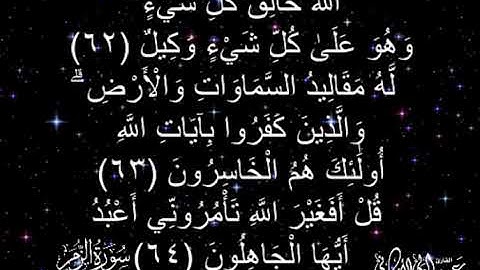 اللَّهُ خَالِقُ كُلِّ شَيْءٍ
وَهُوَ عَلَىٰ كُلِّ شَيْءٍ وَكِيلٌ (٦٢)
لَّهُ مَقَالِيدُ السَّمَاوَاتِ وَالْأَرْضِ ۗ
وَالَّذِينَ كَفَرُوا بِآيَاتِ اللَّهِ
أُولَٰئِكَ هُمُ الْخَاسِرُونَ (٦٣)
قُلْ أَفَغَيْرَ اللَّهِ تَأْمُرُونِّي أَعْبُدُ
أَيُّهَا الْجَاهِلُونَ (٦٤)
سُورَةُ الزُّمَر